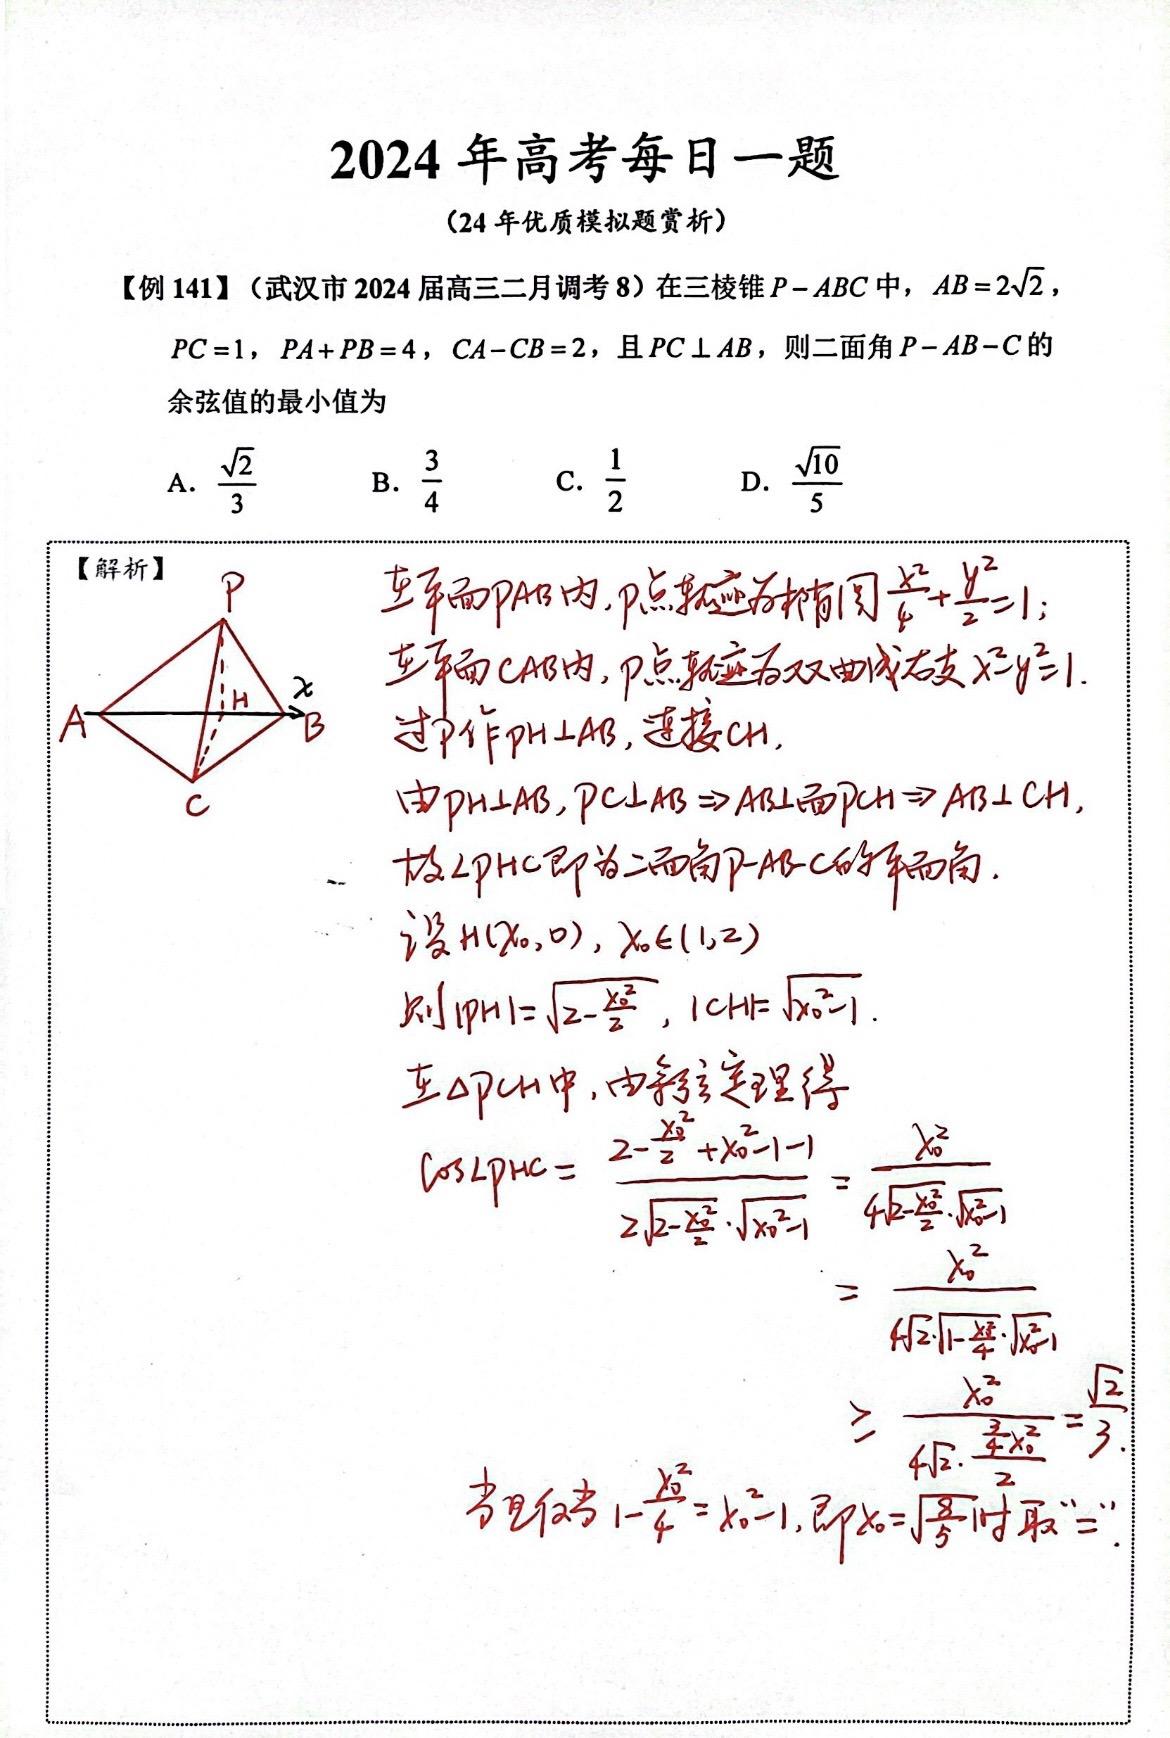 2024 年高考每日一题
（24 年优质模拟题赏析）
【例 141】（武汉市 2024 届高三二月调考 8）在三棱锥 P－ABC 中，AB＝2√2，
PC＝1，PA＋PB＝4，CA－CB＝2，且 PC⊥AB，则二面角 P－AB－C 的
余弦值的最小值为
A. √2/3 B. 3/4 C. 1/2 D. √10/5
【解析】
P
A H x B
C
在平面PAB内,P点轨迹为椭圆 x²/4+y²/2=1;
在平面CAB内,P点轨迹为双曲线右支 x²-y²=1.
过P作PH⊥AB,连接CH,
由PH⊥AB,PC⊥AB⇒AB⊥面PCH⇒AB⊥CH,
故∠PHC即为二面角P-AB-C的平面角.
设H(x₀,0), x₀∈(1,2)
则|PH|=√(2-x₀²/2), |CH|=√(x₀²-1).
在△PCH中,由余弦定理得
cos∠PHC= (2-x₀²/2+x₀²-1-1)/(2√(2-x₀²/2)·√(x₀²-1)) = x₀²/(4√(2-x₀²/2)·√(x₀²-1))
= x₀²/(4√2·√(1-x₀²/4)·√(x₀²-1))
≥ x₀²/(4√2·(3/4 x₀²)/2) = √2/3.
当且仅当 1-x₀²/4=x₀²-1,即x₀=√(8/5)时取"=".